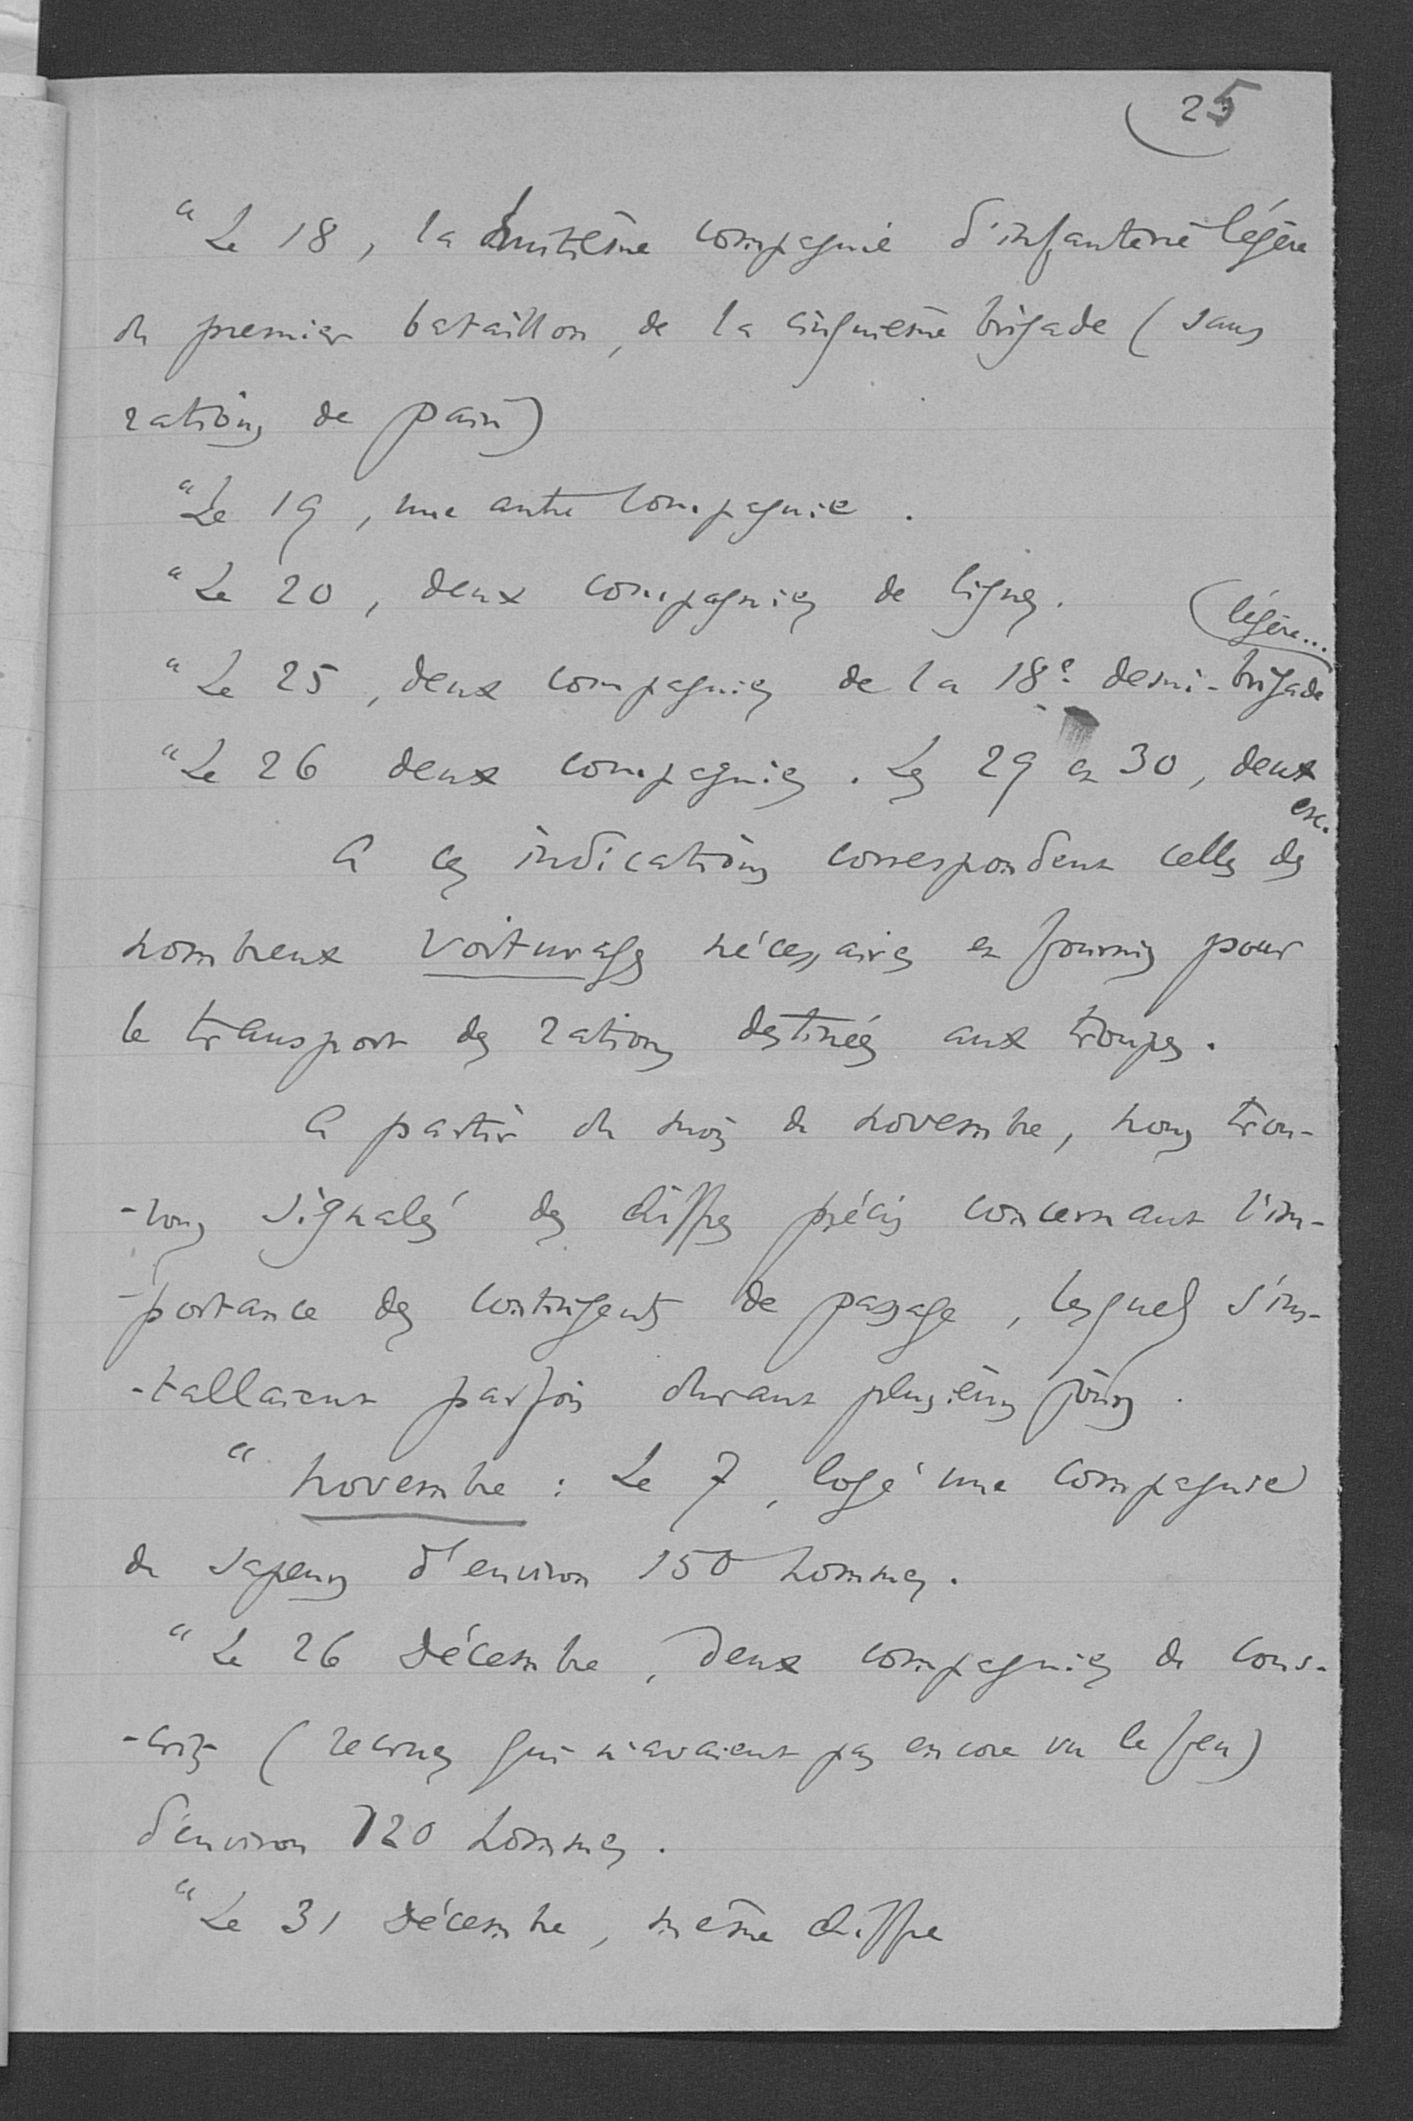 25
"Le 18, la huitième compagnie d'infanterie légère
du premier bataillon, de la cinquième brigade (sans
rations de pain)
"Le 19, une autre compagnie.
"Le 20, deux compagnies de ligne.
légère...
"Le 25, deux compagnies de la 18e demi-brigade
"Le 26 deux compagnies. Les 29 et 30, deux
etc.
A ces indications correspondent celles des
nombreux voiturages nécessaires et fournis pour
le transport des rations destinées aux troupes.
A partir du mois de novembre, nous trou-
-vons signalés des chiffres précis concernant l'im-
-portance des contingents de passage, lesquels s'ins-
-tallaient parfois durant plusieurs jours.
" novembre : Le 7, logé une compagnie
de sapeurs d'environ 150 hommes.
"Le 26 Décembre, deux compagnies de cons-
-crits (recrues qui n'avaient pas encore vu le feu)
d'environ 120 hommes.
"Le 31 Décembre, même chiffre